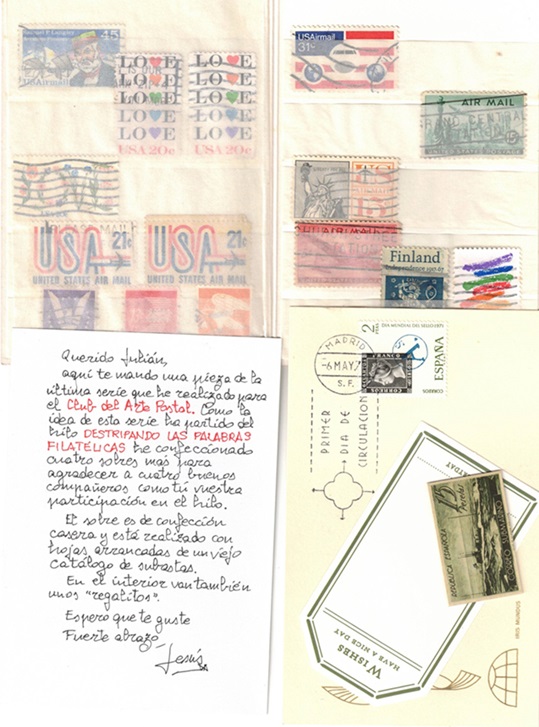 45
USAirmail
LOVE LOVE
LOVE LOVE
LOVE LOVE
LOVE LOVE
LOVE LOVE
USA 20c USA 20c
USA 21c
UNITED STATES AIR MAIL
USA 21c
UNITED STATES AIR MAIL
USAirmail
31c
AIR MAIL
15¢
Finland
Independence 1917-67
Querido Julián,
aquí te mando una pieza de la
última serie que he realizado para
el Club del Arte Postal. Como la
idea de esta serie ha partido del
hilo DESTRIPANDO LAS PALABRAS
FILATÉLICAS he confeccionado
cuatro sobres más para
agradecer a cuatro buenos
compañeros como tú vuestra
participación en el hilo.
El sobre es de confección
casera y está realizado con
hojas arrancadas de un viejo
catálogo de subastas.
En el interior van también
unos "regalitos".
Espero que te guste
Fuerte abrazo
Jesús
MADRID
-6 MAY.7
S.F.
2 PTAS
DIA MUNDIAL DEL SELLO 1975
FRANCO
CORREOS
ESPAÑA
CORREOS
PRIMER
DIA DE
CIRCULACION
WISHES
HAVE A NICE DAY
REPUBLICA ESPAÑOLA
15
Pesetas
CORREO SUBMARINO